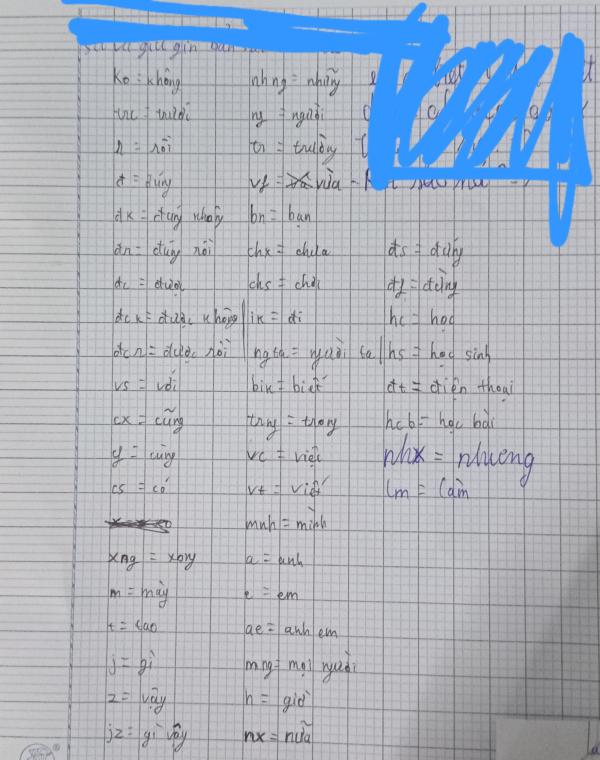 giữ gìn
ko = không
trc = trước
r = rồi
đ = đúng
đk = đúng không
đr = đúng rồi
đc = được
đck = được không
đcr = được rồi
vs = với
cx = cũng
cs = có
xng = xong
m = mày
t = tao
j = gì
z = vậy
jz = gì vậy
nhng = những
ng = người
tr = trường
vf = vừa
bn = bạn
chx = chưa
chs = chơi
ik = đi
ngta = người ta
bik = biết
trng = trong
vc = việc
vt = viết
mnh = mình
a = anh
e = em
ae = anh em
mng = mọi người
h = giờ
nx = nữa
đs = đứng
đf = đừng
hc = học
hs = học sinh
đt = điện thoại
hcb = học bài
nhx = nhưng
lm = làm